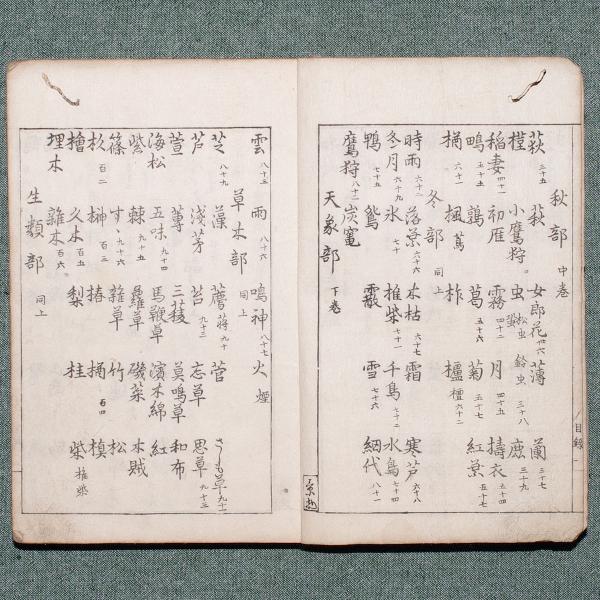 秋部 中巻
荻 三十五 萩 女郎花 三十六 薄 蘭 三十七
槿 小鷹狩。虫 松虫 鈴虫 三十八 鹿 三十九
稲妻 四十一 初雁 霧 四十二 月 四十五 擣衣 五十四
鴫 五十五 鶉 葛 五十六 菊 五十七 紅葉 五十七
楢 六十一 楓 蔦 柞 櫨 檀 六十二
冬部 同上
時雨 落葉 六十六 木枯 六十七 霜 寒芦 六十八
冬月 六十九 氷 七十 椎柴 七十一 千鳥 七十二 水鳥 七十四
鴨 七十五 鴛 霰 雪 七十六 網代 八十一
鷹狩 八十二 炭竃
天象部 下巻
目録 一
雲 八十五 雨 八十六 鳴神 八十七 火 煙
草木部 同上
芝 八十九 藻 薦 蒋 九十 菅 さしも草 九十二
芦 浅茅 苔 九十三 忘草 思草 九十三
萱 蓴 三稜 莫鳴草 和布
海松 五味 九十四 馬鞭草 濱木綿 紅
紫 棘 九十五 蘿草 磯菜 木賊
篠 すゝ 九十六 雜草 竹 松
杉 百二 榊 百三 椿 楢 百四 槙
檜 久木 百五 梨 桂 柴 椎柴
埋木 雜木 百六。
生類部 同上